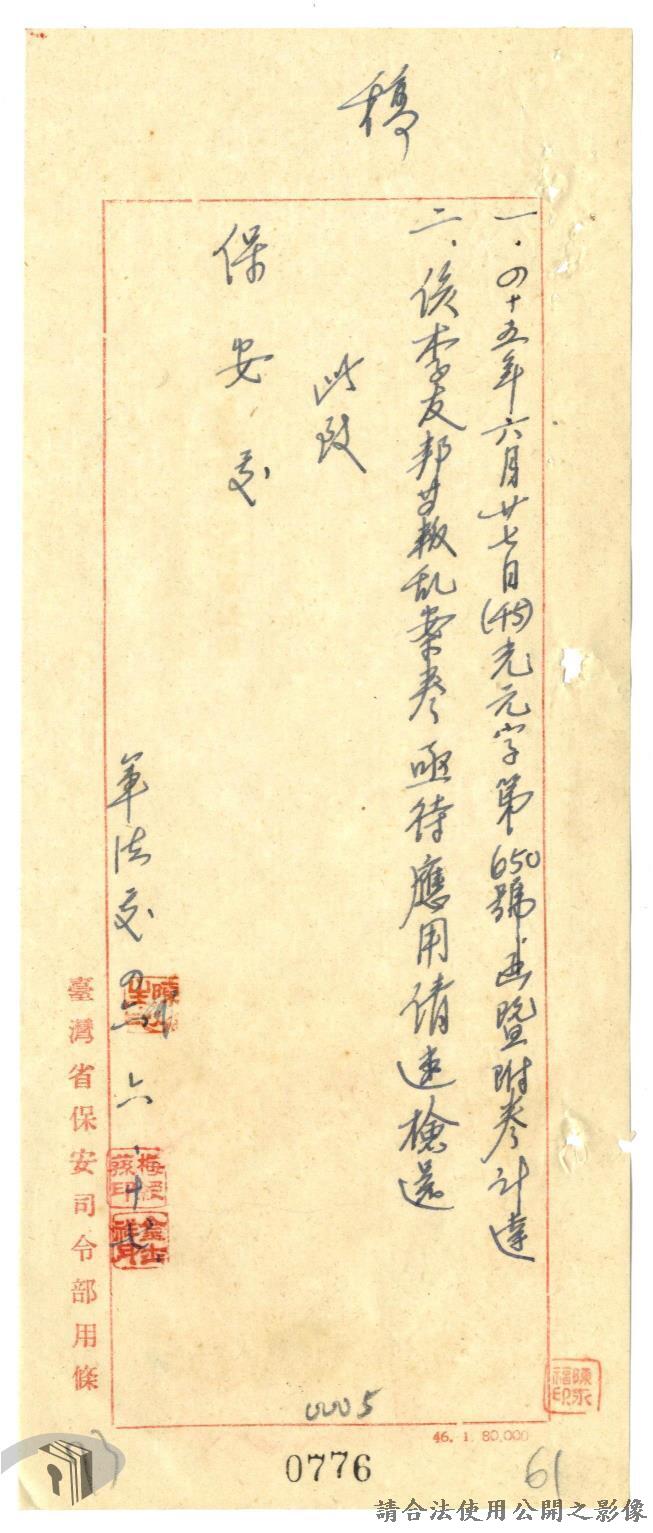 稿
一.四十五年六月廿七日(45)光元字第650號函暨附卷計達
二.侯李友邦等叛乱案卷亟待應用請速檢還
此致
保安处
軍法处
六.十七.
臺灣省保安司令部用條
陳永福印
0005
46. 1. 80,000
0776
61
請合法使用公開之影像